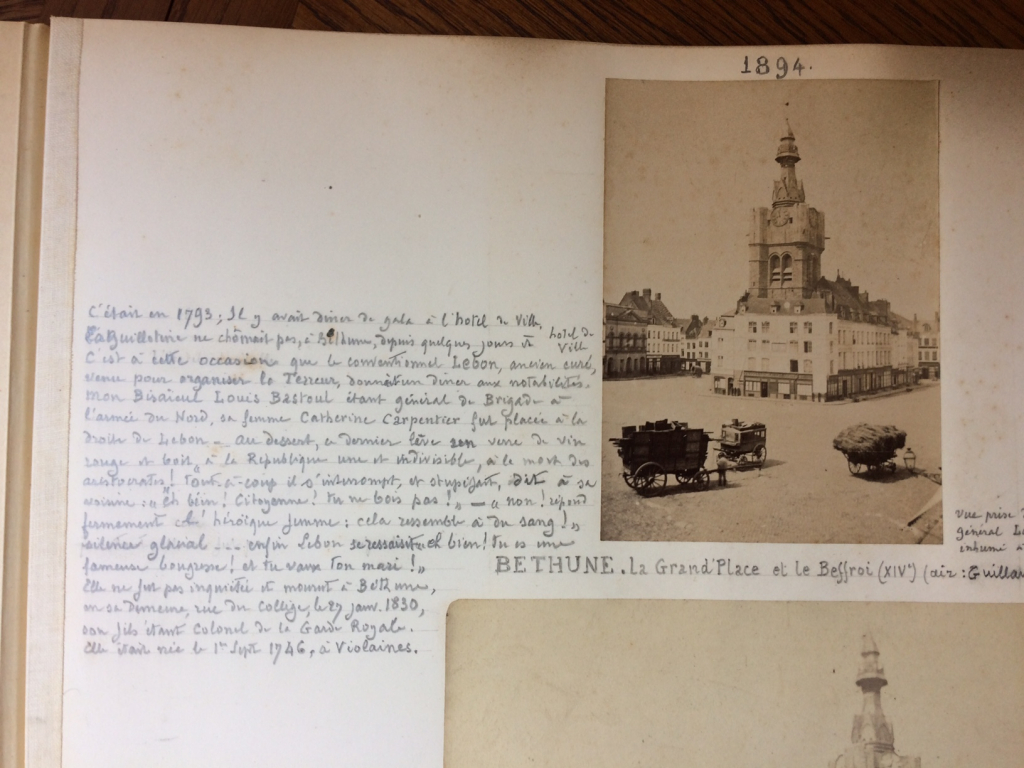 1894.
C'était en 1793; Il y avait dîner de gala à l'hôtel de Ville.
La guillotine ne chômait pas, à Béthune, depuis quelques jours et
hôtel de
Ville
C'est à cette occasion que le conventionnel Lebon, ancien curé,
venu pour organiser la Terreur, donnait un dîner aux notabilités.
Mon Bisaïeul Louis Bastoul étant général de Brigade à
l'armée du Nord, sa femme Catherine Carpentier fut placée à la
droite de Lebon – au dessert, ce dernier lève son verre de vin
rouge et boit "à la République une et indivisible, à la mort des
aristocrates! Tout-à-coup il s'interrompt, et stupéfait, dit à sa
voisine: "eh bien! Citoyenne! tu ne bois pas!" – "non! répond
fermement l'héroïque femme: cela ressemble à du sang!"
silence glacial --- enfin Lebon se ressaisit "eh bien! tu es une
fameuse bougresse! et tu vaux ton mari!"
Elle ne fut pas inquiétée et mourut à Béthune,
en sa demeure, rue du Collège, le 27 janv. 1830,
son fils étant Colonel de la Garde Royale.
Elle était née le 1er Sept 1746, à Violaines.
Vue prise
général
enhumé à
BETHUNE. la Grand'Place et le Beffroi (XIVe) (air: Guillar